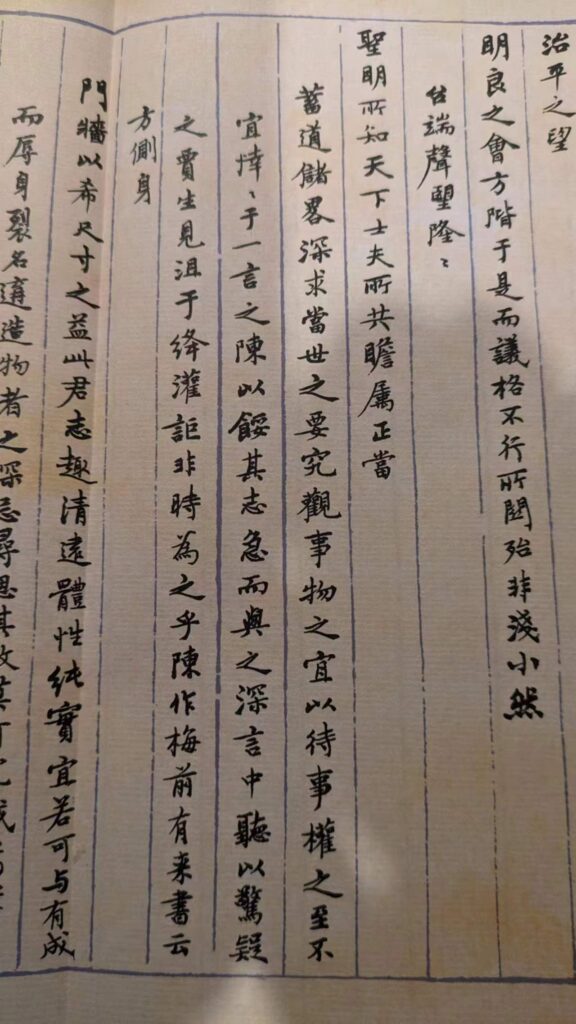 治平之望
明良之會方階于是而議格不行所關殆非淺小然
台端聲望隆〻
聖明所知天下士夫所共瞻属正當
蓄道儲畧深求當世之要究觀事物之宜以待事權之至不
宜悻〻于一言之陳以餒其志急而與之深言中聽以驚疑
之賈生見沮于絳灌詎非時為之乎陳作梅前有来書云
方側身
門牆以希尺寸之益此君志趣清遠體性純實宜若可与有成
而辱身裂名遘造物者之深忌尋思其故莫可